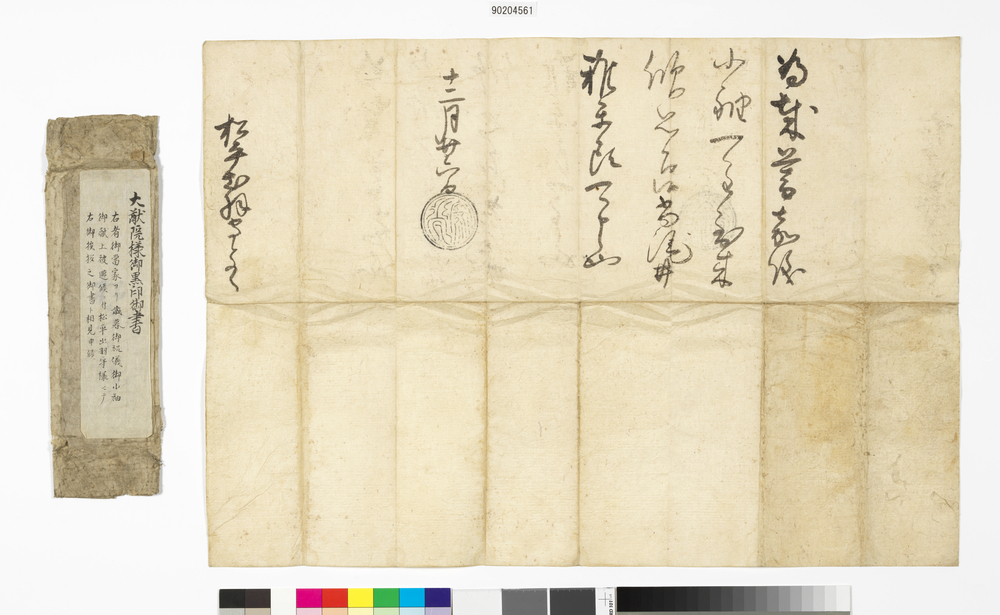 90204561
為歳暮嘉儀
小袖一重到来
思召候尚酒井
雅楽頭可申也
十二月廿
松平出羽守とのへ
大猷院様御黒印御書
右者御當家ヨリ歳暮御祝儀御小袖
御献上被遊候ニ付松平出羽守様ヘノ
右御挨拶之御書ト相見申候